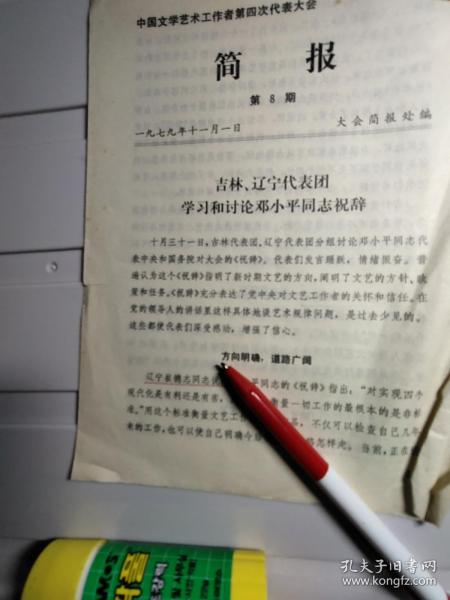 中国文学艺术工作者第四次代表大会
简报
第8期
一九七九年十一月一日 大会简报处编
吉林、辽宁代表团
学习和讨论邓小平同志祝辞
十月三十一日,吉林代表团、辽宁代表团分组讨论邓小平同志代
表中央和国务院对大会的《祝辞》。代表们发言踊跃,情绪振奋。普
遍认为这个《祝辞》指明了新时期文艺的方向,阐明了文艺的方针、政
策和任务。《祝辞》充分表达了党中央对文艺工作者的关怀和信任。在
党的领导人的讲话里这样具体地谈艺术规律问题,是过去少见的。
这些都使代表们深受感动,增强了信心。
方向明确,道路广阔
辽宁崔德志同志 平同志的《祝辞》指出:“对实现四个
现代化是有利还是有害, 衡量一切工作的最根本的是非标
准。”用这个标准衡量文艺工 品,不仅可以检查自己几年
来的工作,也可以使自己明确今 怎样走。当前,正在
孔夫子旧书网
book.kongfz.com